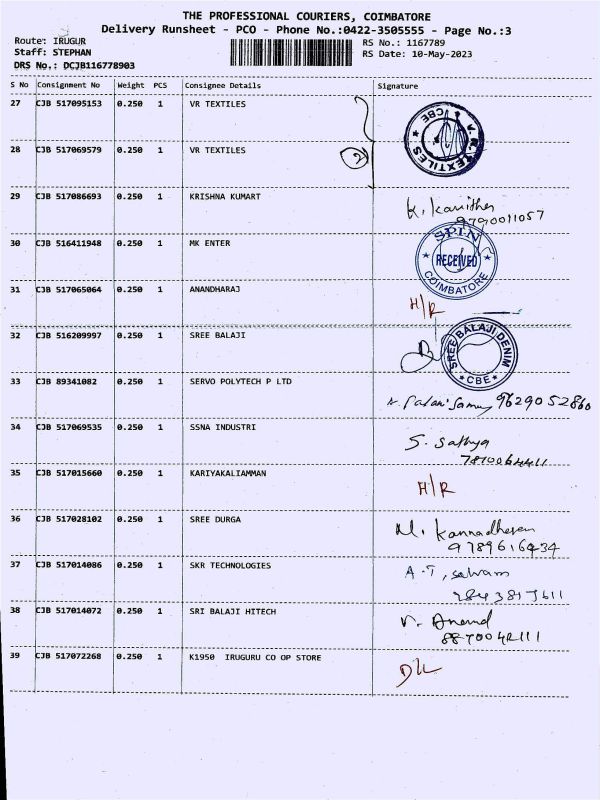 THE PROFESSIONAL COURIERS, COIMBATORE
Delivery Runsheet - PCO - Phone No.:0422-3505555 - Page No.:3
Route: IRUGUR
RS No.: 1167789
Staff: STEPHAN
RS Date: 10-May-2023
DRS No.: DCJB116778903
S No Consignment No Weight PCS Consignee Details Signature
27 CJB 517095153 0.250 1 VR TEXTILES
CBE
TEXTILES
28 CJB 517069579 0.250 1 VR TEXTILES 2
29 CJB 517086693 0.250 1 KRISHNA KUMART K. Kavitha
9790011057
30 CJB 516411948 0.250 1 MK ENTER
SPIN
RECEIVED
COIMBATORE
31 CJB 517065064 0.250 1 ANANDHARAJ H/R
32 CJB 516209997 0.250 1 SREE BALAJI
SREE BALAJI DENIM
CBE
33 CJB 89341082 0.250 1 SERVO POLYTECH P LTD
9629052860
34 CJB 517069535 0.250 1 SSNA INDUSTRI S. Sathya
35 CJB 517015660 0.250 1 KARIYAKALIAMMAN H/R
36 CJB 517028102 0.250 1 SREE DURGA
9789616434
37 CJB 517014086 0.250 1 SKR TECHNOLOGIES A.T, selvam
38 CJB 517014072 0.250 1 SRI BALAJI HITECH V. Anand
39 CJB 517072268 0.250 1 K1950 IRUGURU CO OP STORE D/L